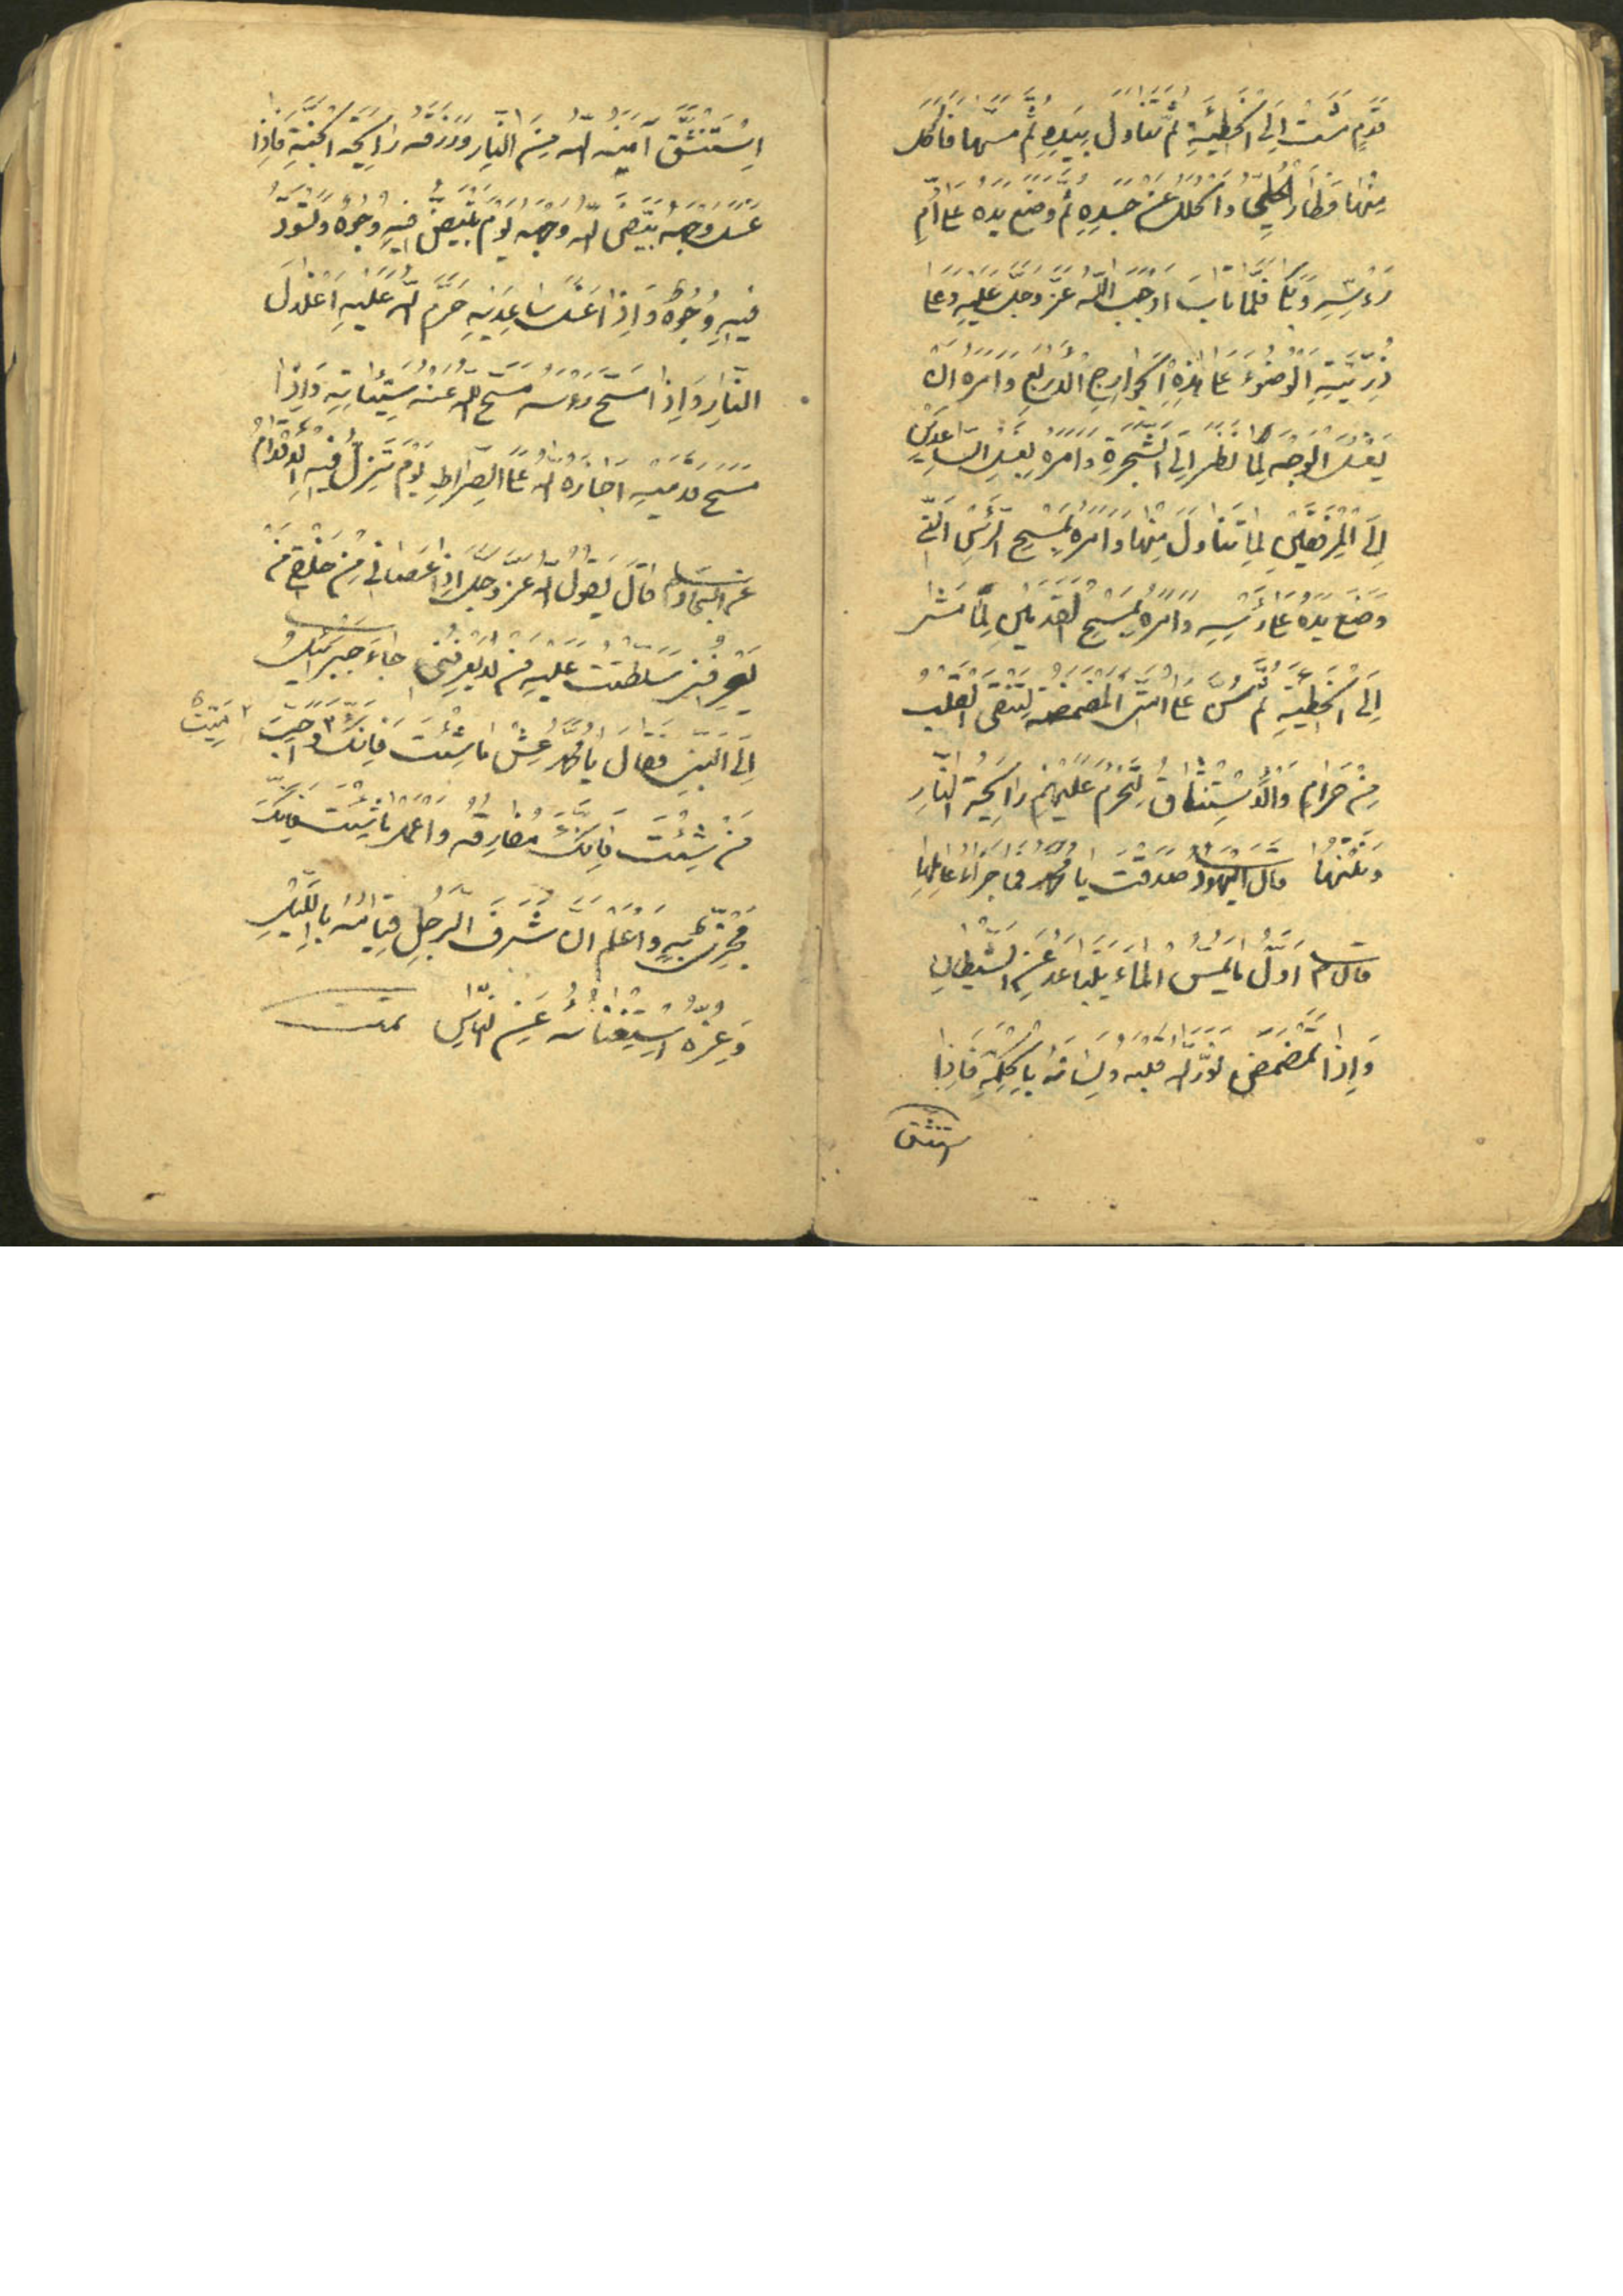 قَدَمٍ مَشَتْ اِلَى الْخَطِيئَةِ ثُمَّ تَنَاوَلَ بِيَدِهِ ثُمَّ مَسَّهَا فَاَكَلَ
مِنْهَا فَطَارَ الْحُلِيُّ وَالْحُلَلُ عَنْ جَسَدِهِ ثُمَّ وَضَعَ يَدَهُ عَلَى اُمِّ
رَءْسِهِ وَبَكَا فَلَمَّا تَابَ اَوْجَبَ اللّهُ عَزَّ وَجَلَّ عَلَيْهِ وَعَلَى
ذُرِّيَّتِهِ الْوُضُوءَ عَلَى هٰذِهِ الْجَوَارِحِ الْاَرْبَعِ وَاَمَرَهُ اَنْ
يَغْسِلَ الْوَجْهَ لِمَا نَظَرَ اِلَى الشَّجَرَةِ وَاَمَرَهُ بِغَسْلِ السَّاعِدَيْنِ
اِلَى الْمِرْفَقَيْنِ لِمَا تَنَاوَلَ مِنْهَا وَاَمَرَهُ بِمَسْحِ الرَّأْسِ الَّتِي
وَضَعَ يَدَهُ عَلَى رَأْسِهِ وَاَمَرَهُ بِمَسْحِ الْقَدَمَيْنِ لِمَا مَشَى
اِلَى الْخَطِيئَةِ ثُمَّ سَنَّ عَلَى اُمَّتِي الْمَضْمَضَةَ لِتُنَقِّيَ الْقَلْبَ
مِنْ حَرَامٍ وَالْاِسْتِنْشَاقَ لِتُحَرَّمَ عَلَيْهِمْ رَايِحَةُ النَّارِ
وَنَتْنِهَا قَالَ الْيَهُودُ صَدَقْتَ يَا مُحَمَّدُ فَمَا جَزَاءُ عَامِلِهَا
قَالَ ص اَوَّلُ مَا يَمَسُّ الْمَاءَ يَتَبَاعَدُ عَنْهُ الشَّيْطَانُ
وَاِذَا تَمَضْمَضَ نَوَّرَ اللّهُ قَلْبَهُ وَلِسَانَهُ بِالْحِكْمَةِ فَاِذَا
استنشق
اِسْتَنْشَقَ آمَنَهُ اللّهُ مِنَ النَّارِ وَرَزَقَهُ رَايِحَةَ الْجَنَّةِ فَاِذَا
غَسَلَ وَجْهَهُ بَيَّضَ اللّهُ وَجْهَهُ يَوْمَ تَبْيَضُّ فِيهِ وُجُوهٌ وَتَسْوَدُّ
فِيهِ وُجُوهٌ وَاِذَا غَسَلَ سَاعِدَيْهِ حَرَّمَ اللّهُ عَلَيْهِ اَغْلَالَ
النَّارِ وَاِذَا مَسَحَ رَءْسَهُ مَسَحَ اللّهُ عَنْهُ سَيِّئَاتِهِ وَاِذَا
مَسَحَ قَدَمَيْهِ اَجَازَهُ اللّهُ عَلَى الصِّرَاطِ يَوْمَ تَزِلُّ فِيهِ الْاَقْدَامُ
عن السجاد قَالَ يَقُولُ اللّهُ عَزَّ وَجَلَّ اِذَا عَصَانِي مِنْ خَلْقِي مَنْ
يَعْرِفُنِي سَلَّطْتُ عَلَيْهِ مَنْ لَا يَعْرِفُنِي جَاءَ جَبْرَئِيلُ
اِلَى النَّبِيِّ فَقَالَ يَا مُحَمَّدُ عِشْ مَا شِئْتَ فَاِنَّكَ مَيِّتٌ وَاَحْبِبْ
مَنْ شِئْتَ فَاِنَّكَ مُفَارِقُهُ وَاعْمَلْ مَا شِئْتَ فَاِنَّكَ
مَجْزِيٌّ بِهِ وَاعْلَمْ اَنَّ شَرَفَ الرَّجُلِ قِيَامُهُ بِاللَّيْلِ
وَعِزُّهُ اسْتِغْنَاؤُهُ عَنِ النَّاسِ تمت